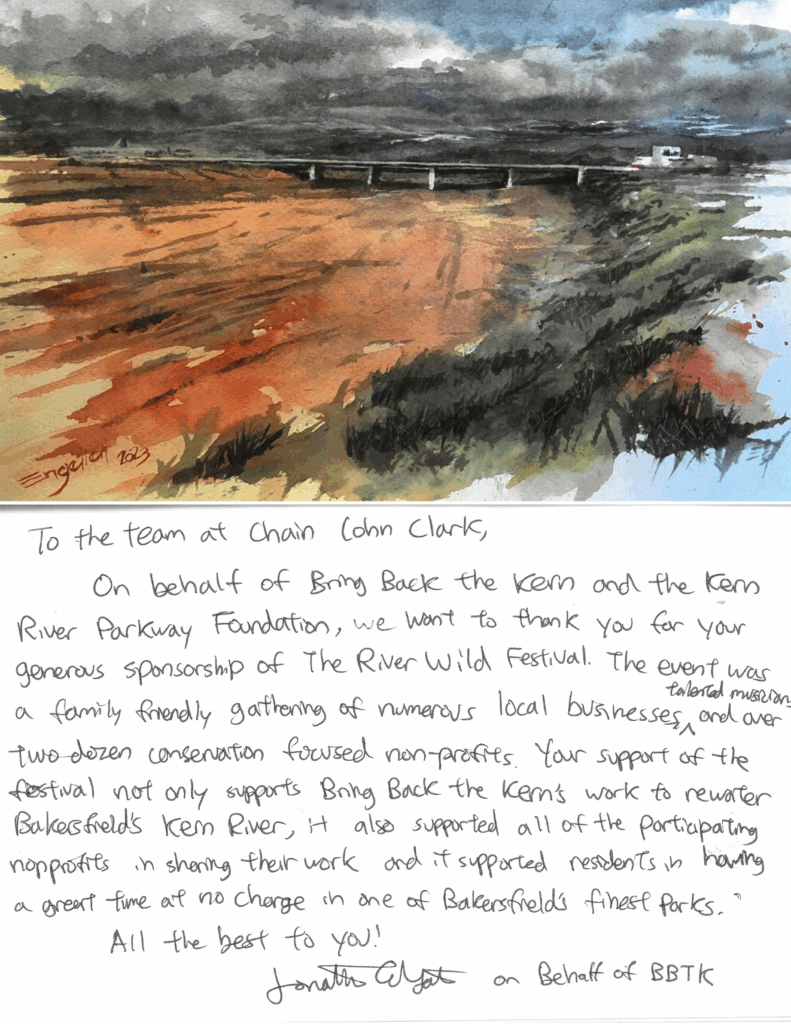 Engelien 2023
To the team at Chain Cohn Clark,
On behalf of Bring Back the Kern and the Kern
River Parkway Foundation, we want to thank you for your
generous sponsorship of The River Wild Festival. The event was
a family friendly gathering of numerous local businesses, talented musicians, and over
two dozen conservation focused non-profits. Your support of the
festival not only supports Bring Back the Kern's work to rewater
Bakersfield's Kern River, it also supported all of the participating
nonprofits in sharing their work and it supported residents in having
a great time at no charge in one of Bakersfield's finest parks.
All the best to you!
on Behalf of BBTK